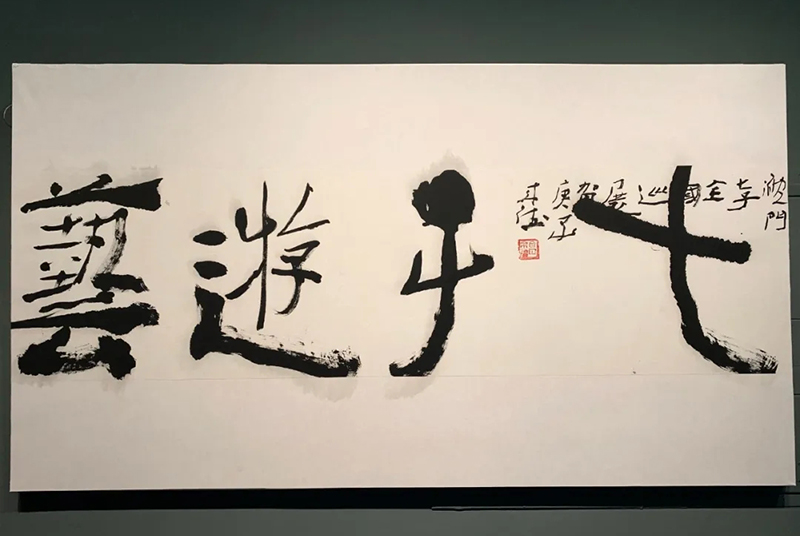 七子遊藝
澳門七子全國巡展賀
庚子